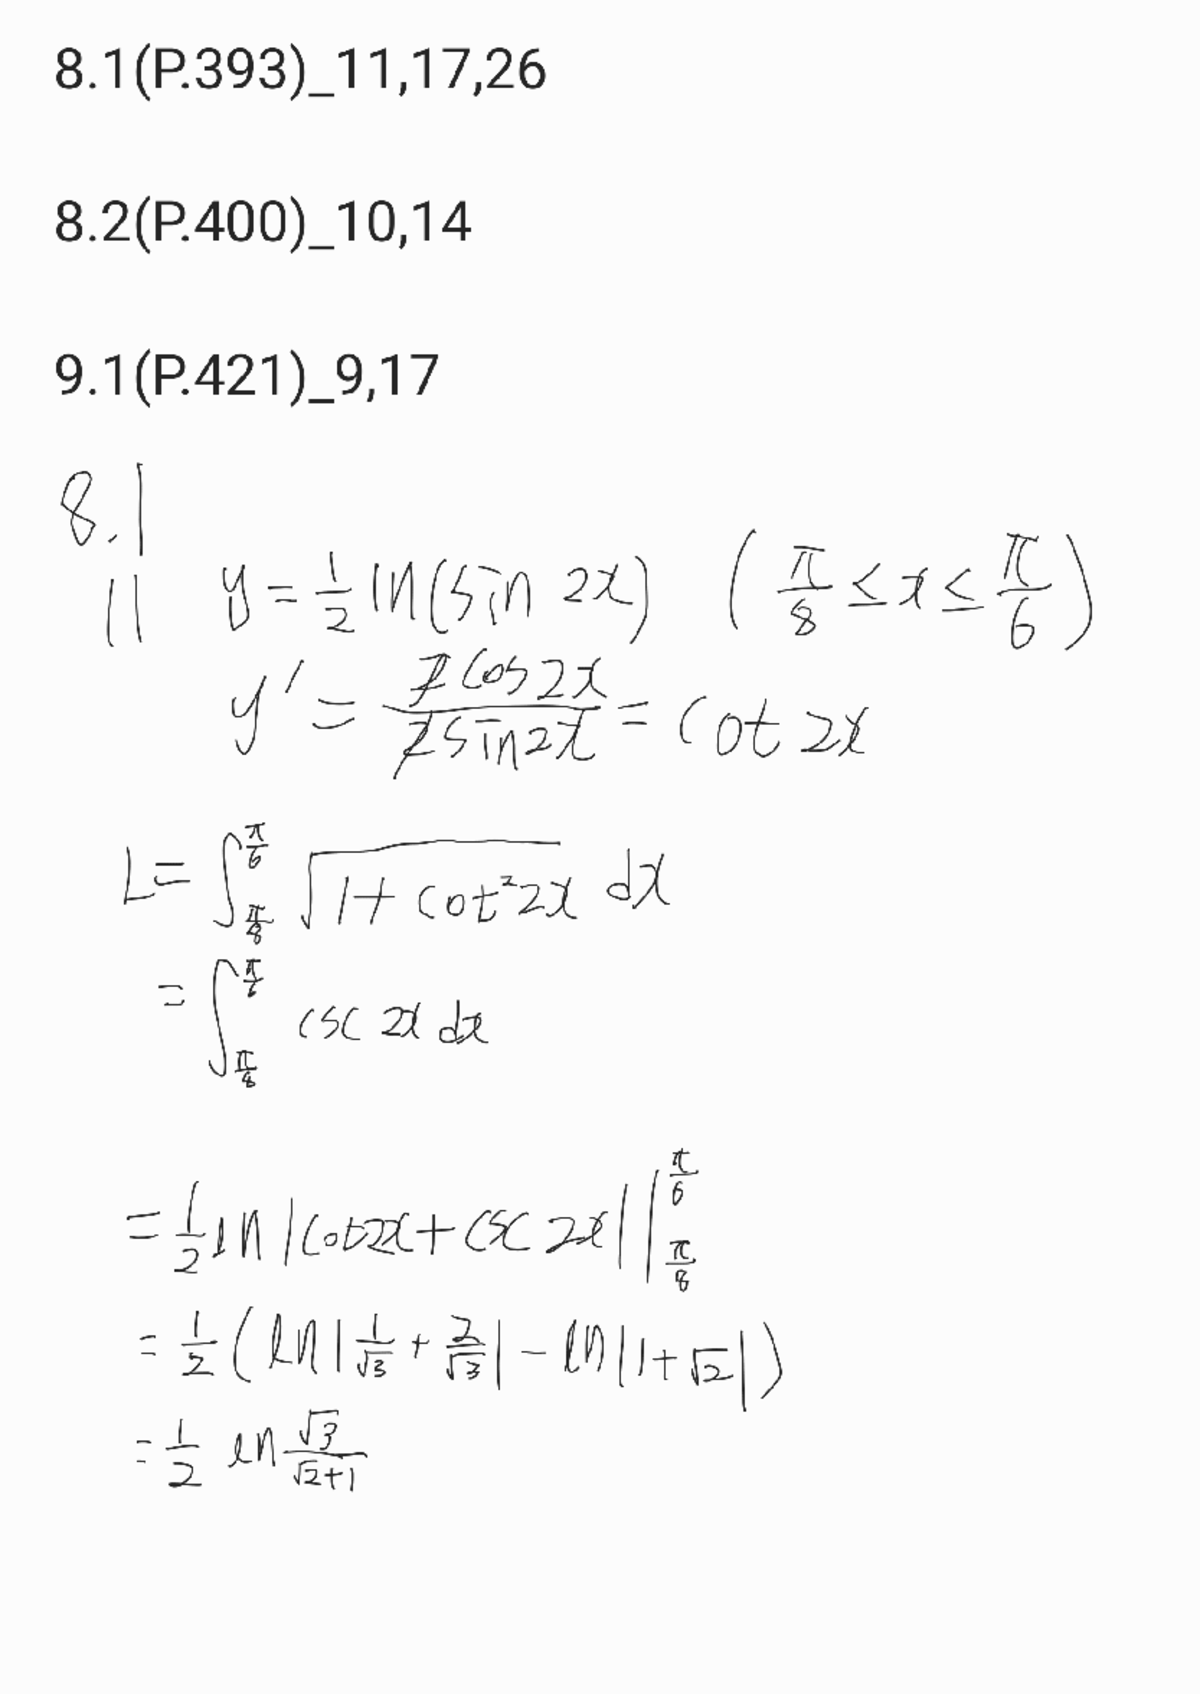 8.1(P.393)_11,17,26
8.2(P.400)_10,14
9.1(P.421)_9,17
8.1
11 y = 1/2 ln(sin 2x) (π/8 ≤ x ≤ π/6)
y' = 2cos2x/2sin2x = cot 2x
L = ∫_{π/8}^{π/6} √(1+cot²2x) dx
= ∫_{π/8}^{π/6} csc 2x dx
= 1/2 ln|cot2x + csc 2x| |_{π/8}^{π/6}
= 1/2 (ln|1/√3 + 2/√3| - ln|1+√2|)
= 1/2 ln √3/(√2+1)